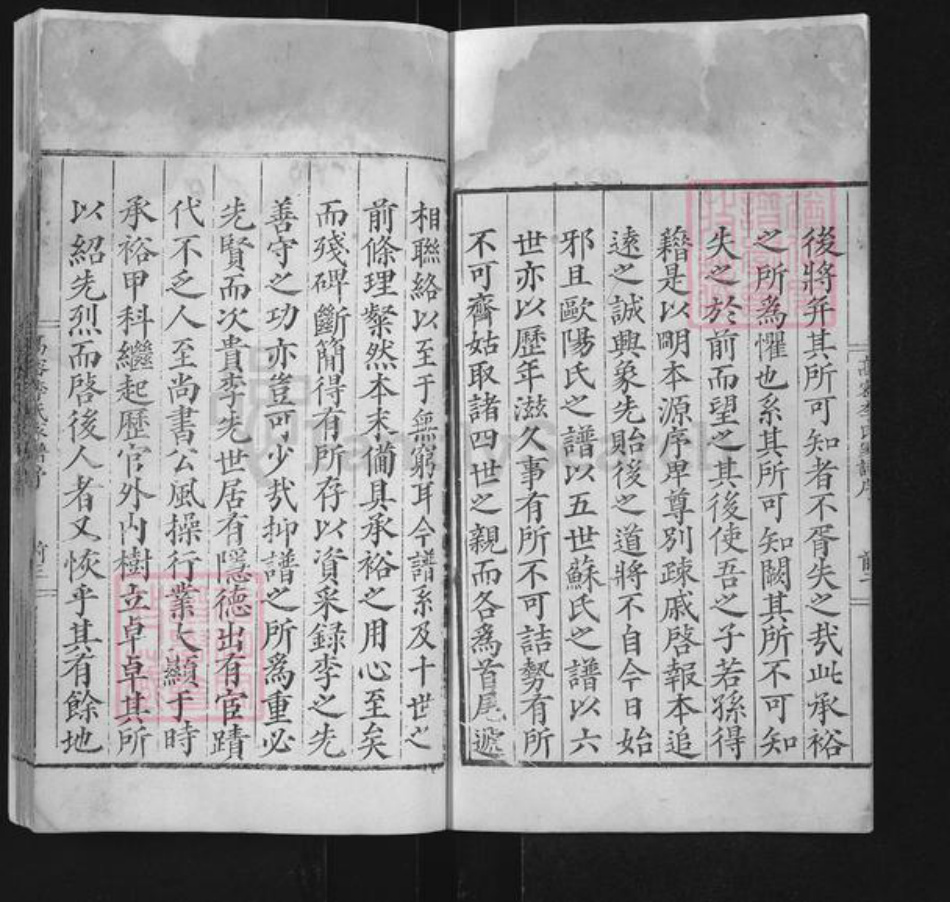 後將并其所可知者不胥失之㢤此承裕
之所爲懼也系其所可知闕其所不可知
失之於前而望之其後使吾之子若孫得
籍是以明本源序卑尊別疎戚啓報本追
遠之誠興象先貽後之道將不自今日始
邪且歐陽氏之譜以五世蘇氏之譜以六
世亦以歷年滋久事有所不可詰勢有所
不可齊姑取諸四世之親而各爲首尾遞
相聯絡以至于無窮耳今譜系及十世之
前條理粲然本末備具承裕之用心至矣
而殘碑斷簡得有所存以資采録李之先
善守之功亦豈可少㢤抑譜之所爲重必
先賢而次貴李先世居有隱德出有宦蹟
代不乏人至尚書公風操行業大顯于時
承裕甲科繼起歷官外内樹立卓卓其所
以紹先烈而啓後人者又恢乎其有餘地